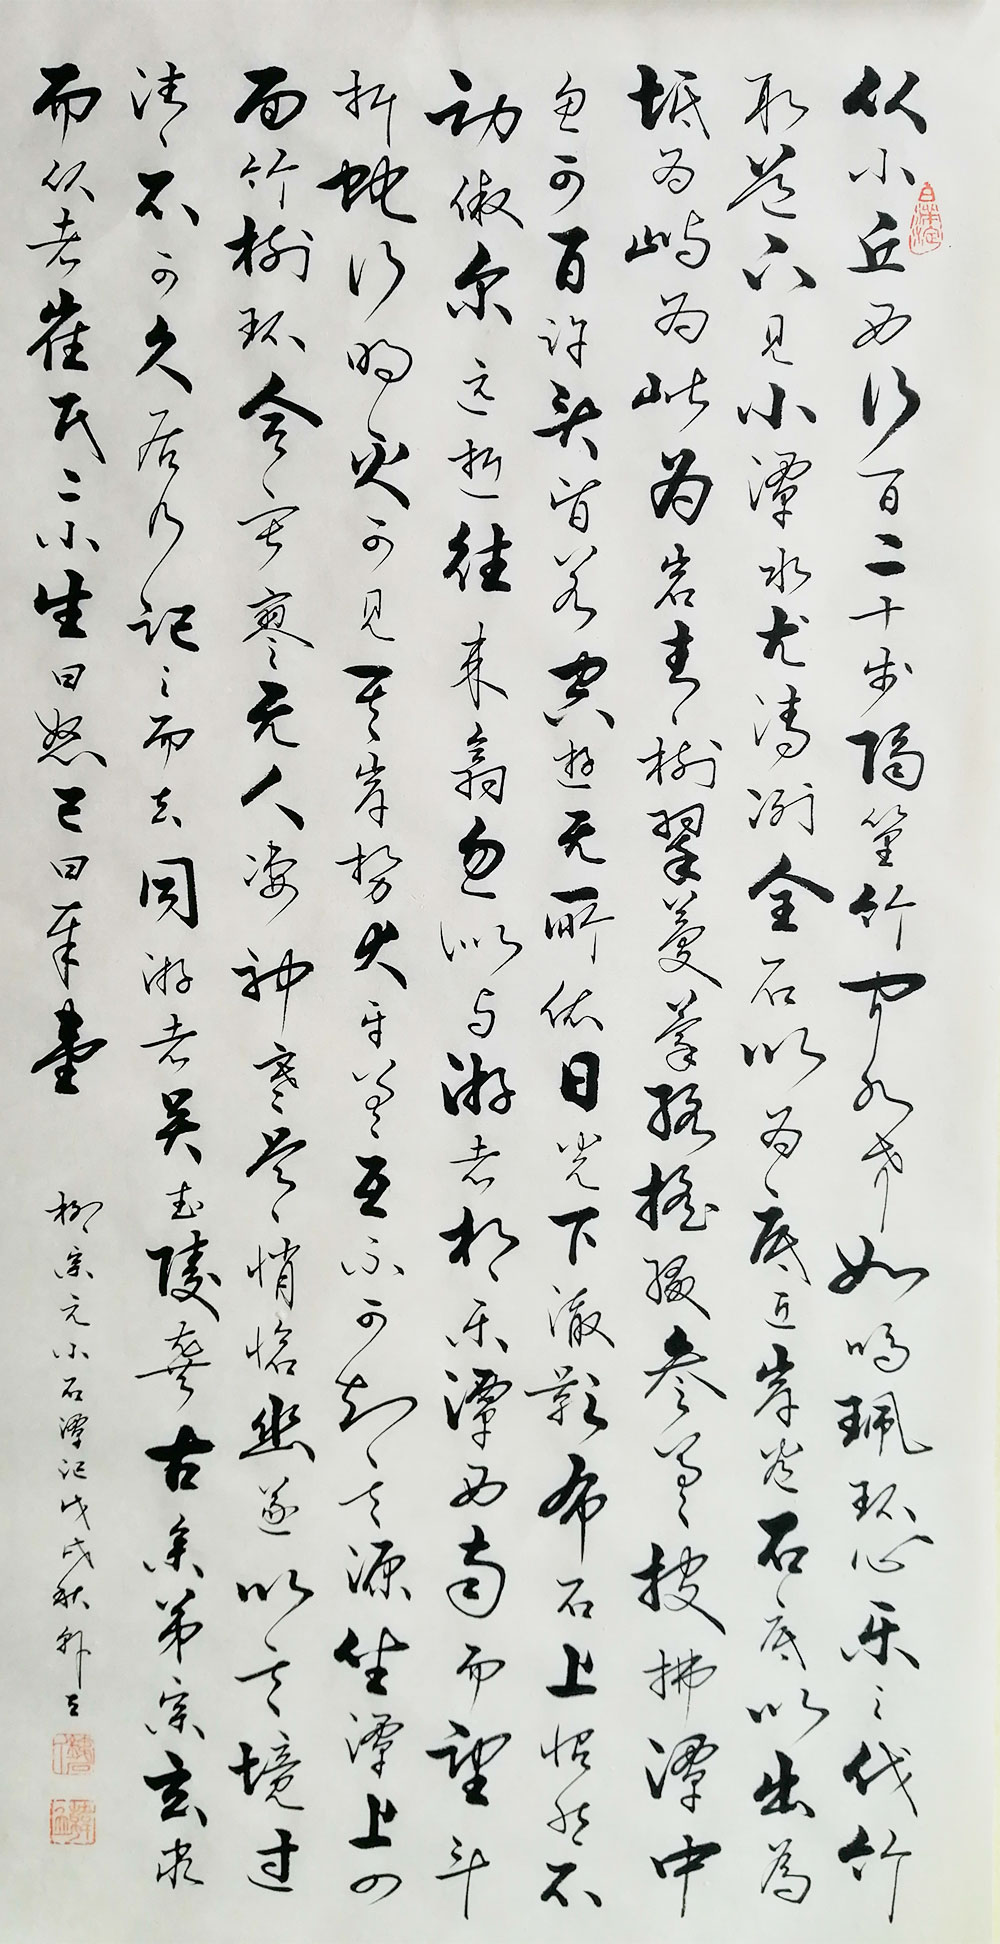 从小丘西行百二十步隔篁竹闻水声如鸣珮环心乐之伐竹
取道下见小潭水尤清冽全石以为底近岸卷石底以出为
坻为屿为嵁为岩青树翠蔓蒙络摇缀参差披拂潭中
鱼可百许头皆若空游无所依日光下澈影布石上佁然不
动俶尔远逝往来翕忽似与游者相乐潭西南而望斗
折蛇行明灭可见其岸势犬牙差互不可知其源坐潭上四
面竹树环合寂寥无人凄神寒骨悄怆幽邃以其境过
清不可久居乃记之而去同游者吴武陵龚古余弟宗玄隶
而从者崔氏二小生曰恕己曰奉壹
柳宗元小石潭记戊戌秋